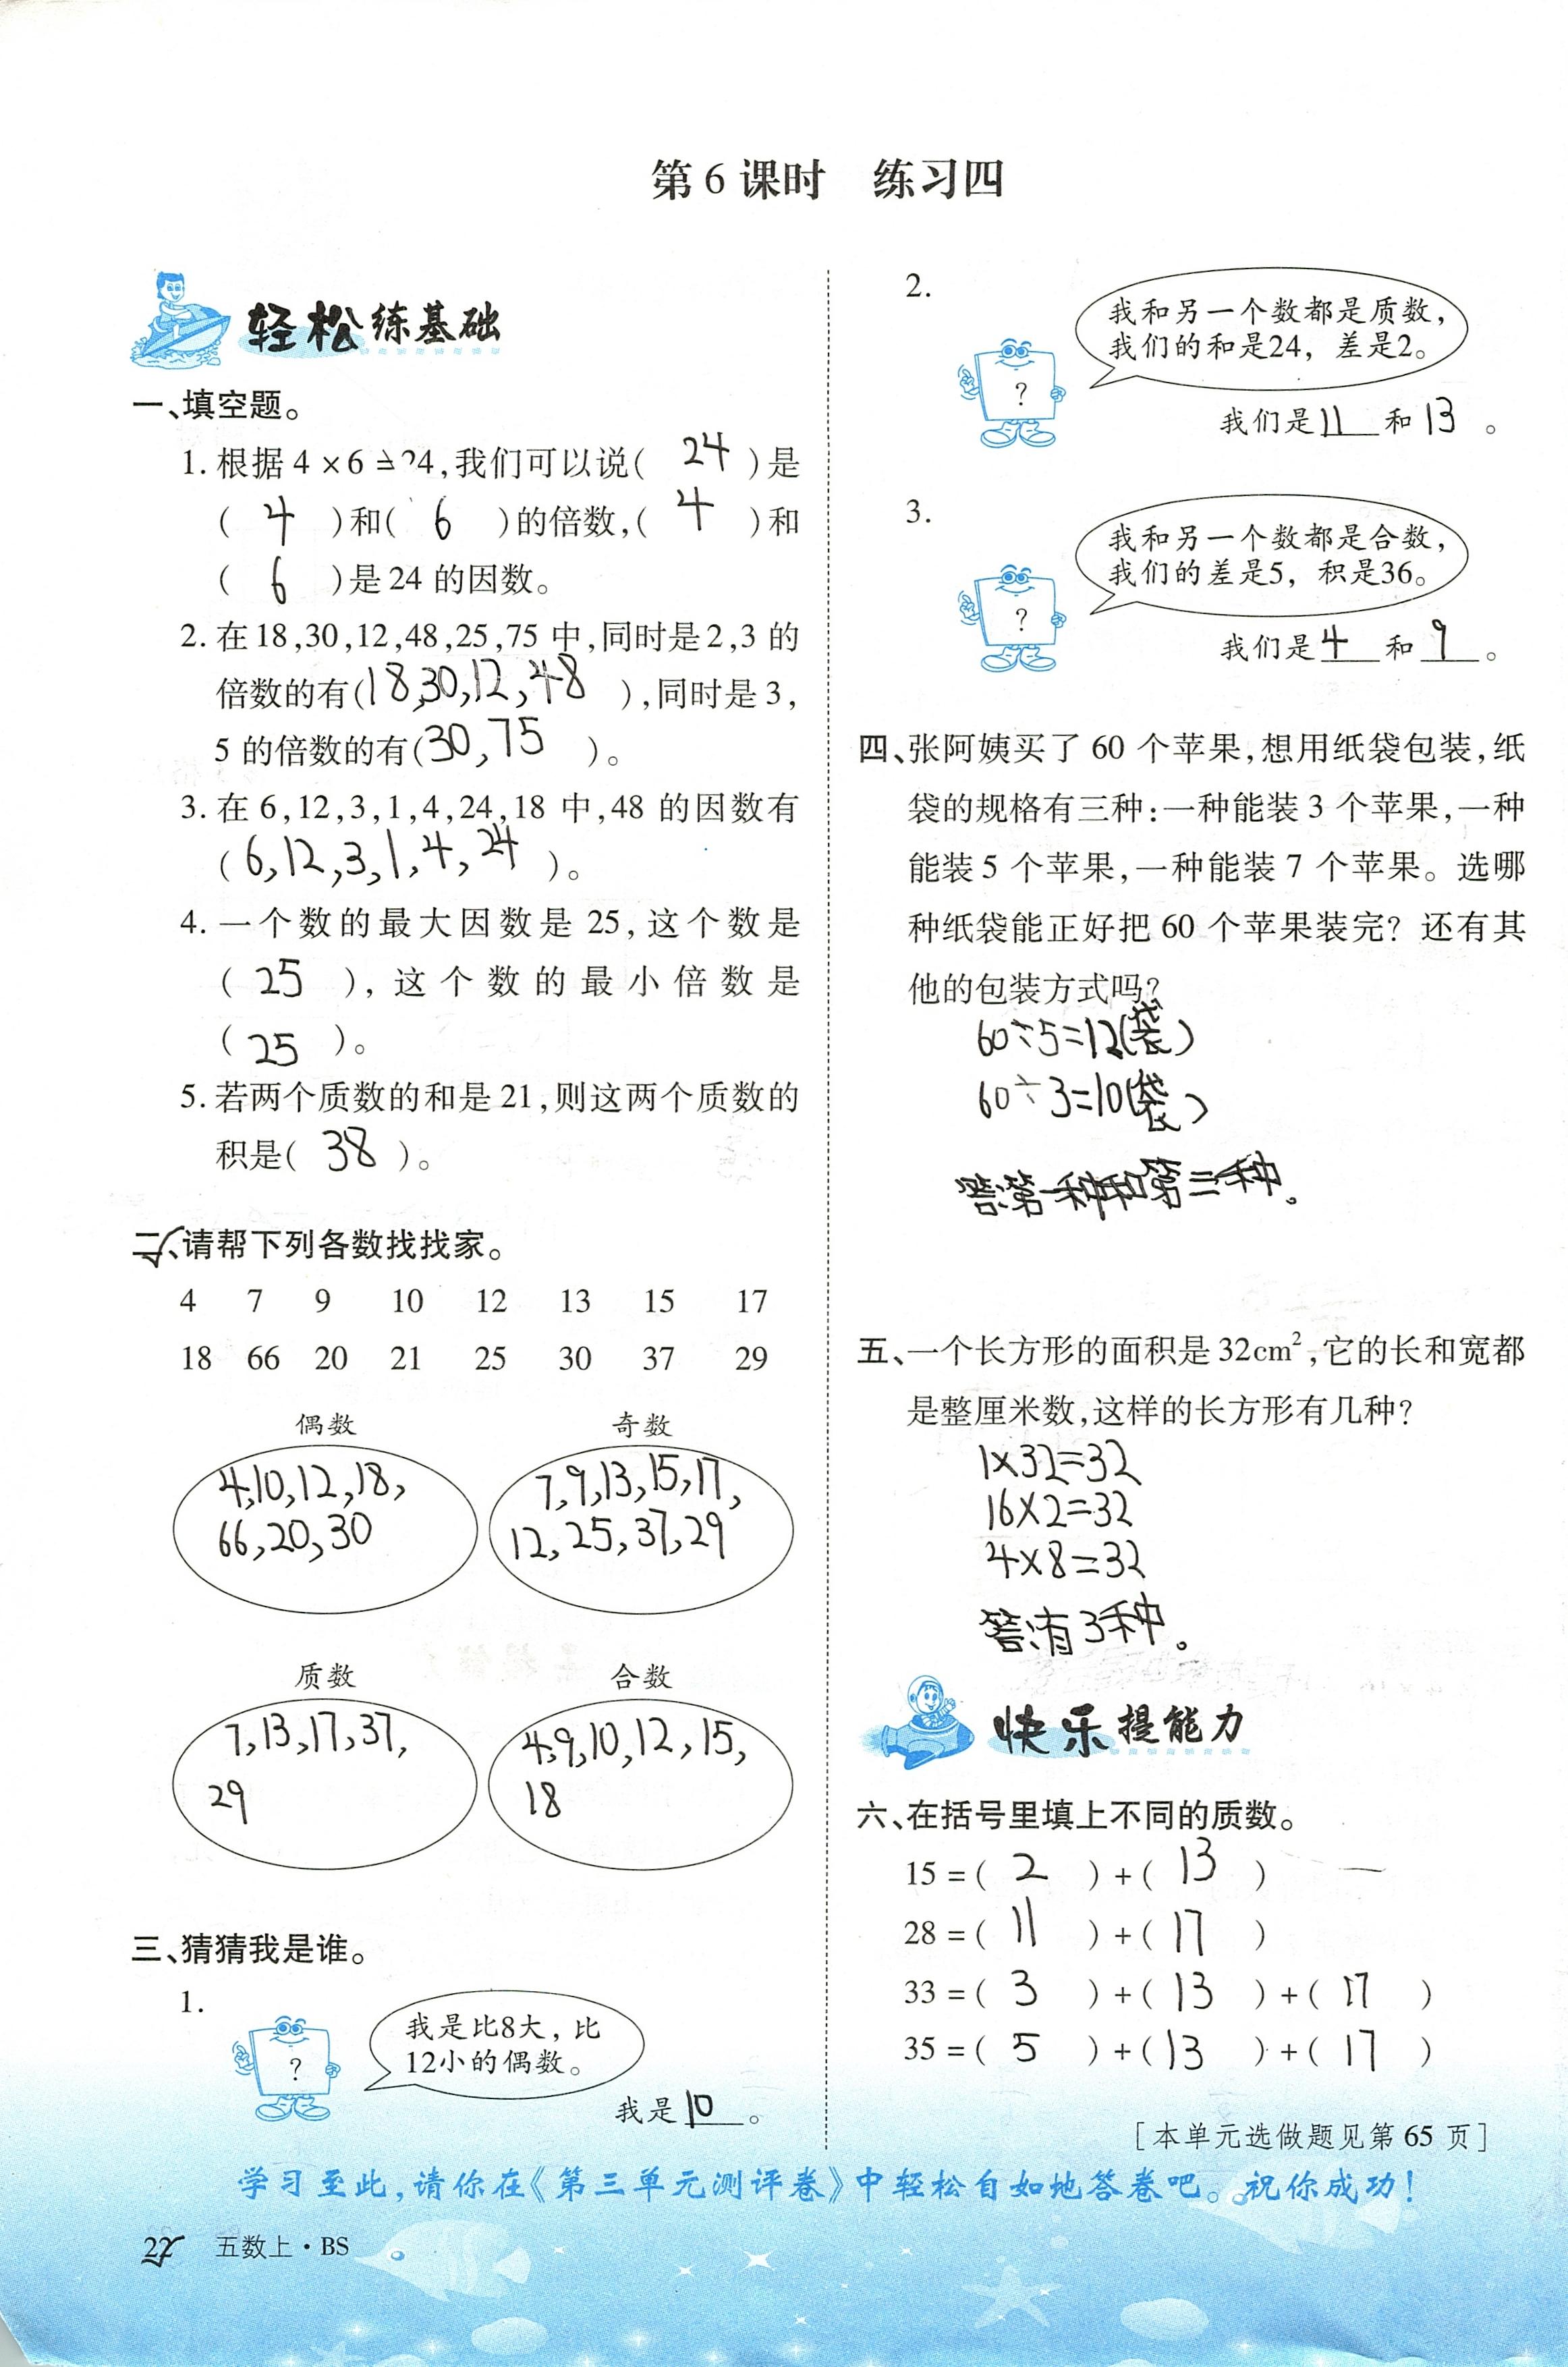 第6课时 练习四
轻松练基础
一、填空题。
1. 根据4×6=24,我们可以说( 24 )是
( 4 )和( 6 )的倍数,( 4 )和
( 6 )是24的因数。
2. 在18,30,12,48,25,75中,同时是2,3的
倍数的有(18,30,12,48 ),同时是3,
5的倍数的有(30,75 )。
3. 在6,12,3,1,4,24,18中,48的因数有
( 6,12,3,1,4,24 )。
4. 一个数的最大因数是25,这个数是
( 25 ),这个数的最小倍数是
( 25 )。
5. 若两个质数的和是21,则这两个质数的
积是( 38 )。
二、请帮下列各数找找家。
4 7 9 10 12 13 15 17
18 66 20 21 25 30 37 29
偶数 奇数
4,10,12,18, 7,9,13,15,17,
66,20,30 12,25,37,29
质数 合数
7,13,17,37, 4,9,10,12,15,
29 18
三、猜猜我是谁。
1.
我是比8大,比
12小的偶数。
?
我是10。
2.
我和另一个数都是质数,
我们的和是24,差是2。
?
我们是11和13。
3.
我和另一个数都是合数,
我们的差是5,积是36。
?
我们是4和9。
四、张阿姨买了60个苹果,想用纸袋包装,纸
袋的规格有三种:一种能装3个苹果,一种
能装5个苹果,一种能装7个苹果。选哪
种纸袋能正好把60个苹果装完?还有其
他的包装方式吗?
60÷5=12(袋)
60÷3=10(袋)
答:第一种和第二种。
五、一个长方形的面积是32cm²,它的长和宽都
是整厘米数,这样的长方形有几种?
1×32=32
16×2=32
4×8=32
答:有3种。
快乐提能力
六、在括号里填上不同的质数。
15=( 2 )+( 13 )
28=( 11 )+( 17 )
33=( 3 )+( 13 )+( 17 )
35=( 5 )+( 13 )+( 17 )
[本单元选做题见第65页]
学习至此,请你在《第三单元测评卷》中轻松自如地答卷吧。祝你成功!
22 五数上·BS